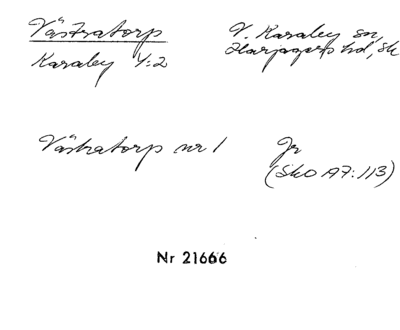 Västratorp
V. Karaby sn,
Harjagers hd, Sk
Karaby 4:2
Västratorp nr 1
Jr
(Sko A7:113)
Nr 21666